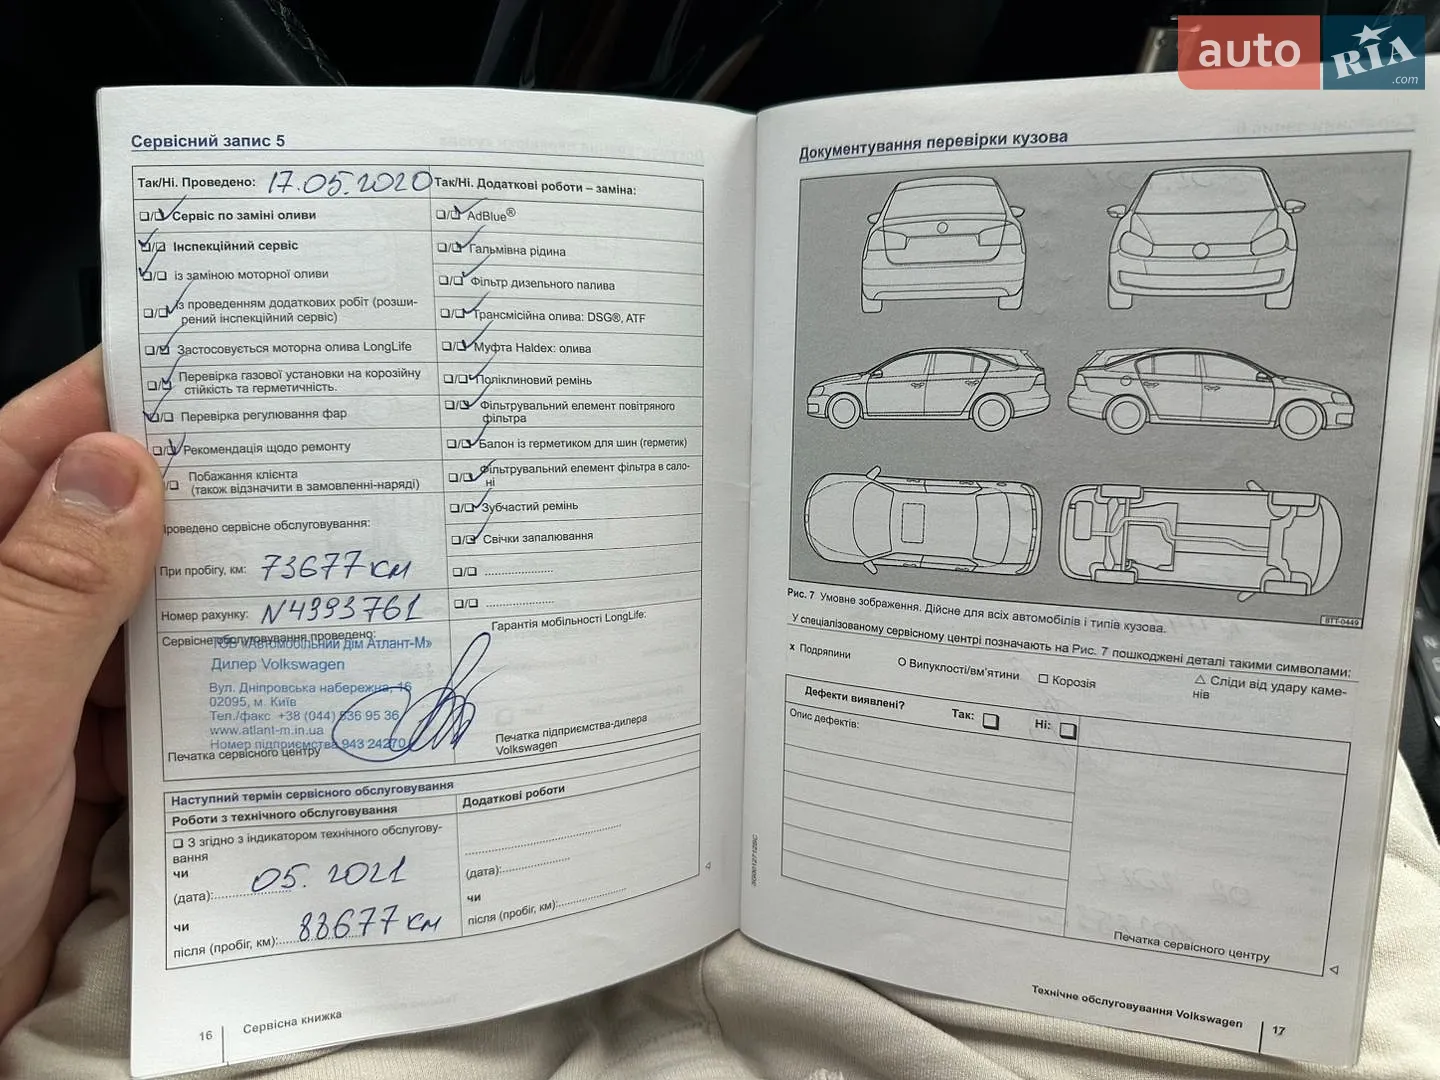 auto RIA.com
Сервісний запис 5
Так/Ні. Проведено: 17.05.2020
Сервіс по заміні оливи
Інспекційний сервіс
із заміною моторної оливи
із проведенням додаткових робіт (розши-
рений інспекційний сервіс)
Застосовується моторна олива LongLife
Перевірка газової установки на корозійну
стійкість та герметичність.
Перевірка регулювання фар
Рекомендація щодо ремонту
Побажання клієнта
(також відзначити в замовленні-наряді)
Проведено сервісне обслуговування:
При пробігу, км: 73677 км
Номер рахунку: N4393761
Сервісне обслуговування проведено:
ТОВ «Автомобільний дім Атлант-М»
Дилер Volkswagen
Вул. Дніпровська набережна, 16
02095, м. Київ
Тел./факс +38 (044) 536 95 36
www.atlant-m.in.ua
Номер підприємства 943 24270
Печатка сервісного центру
Так/Ні. Додаткові роботи – заміна:
AdBlue®
Гальмівна рідина
Фільтр дизельного палива
Трансмісійна олива: DSG®, ATF
Муфта Haldex: олива
Поліклиновий ремінь
Фільтрувальний елемент повітряного
фільтра
Балон із герметиком для шин (герметик)
Фільтрувальний елемент фільтра в сало-
ні
Зубчастий ремінь
Свічки запалювання
Гарантія мобільності LongLife:
Печатка підприємства-дилера
Volkswagen
Наступний термін сервісного обслуговування
Роботи з технічного обслуговування
З згідно з індикатором технічного обслугову-
вання
чи
(дата): 05. 2021
чи
після (пробіг, км): 88677 км
Додаткові роботи
(дата):
чи
після (пробіг, км):
16 Сервісна книжка
Документування перевірки кузова
BTT-0449
Рис. 7 Умовне зображення. Дійсне для всіх автомобілів і типів кузова.
У спеціалізованому сервісному центрі позначають на Рис. 7 пошкоджені деталі такими символами:
x Подряпини
O Випуклості/вм'ятини
□ Корозія
△ Сліди від удару каме-
нів
Дефекти виявлені? Так: Ні:
Опис дефектів:
Печатка сервісного центру
Технічне обслуговування Volkswagen 17